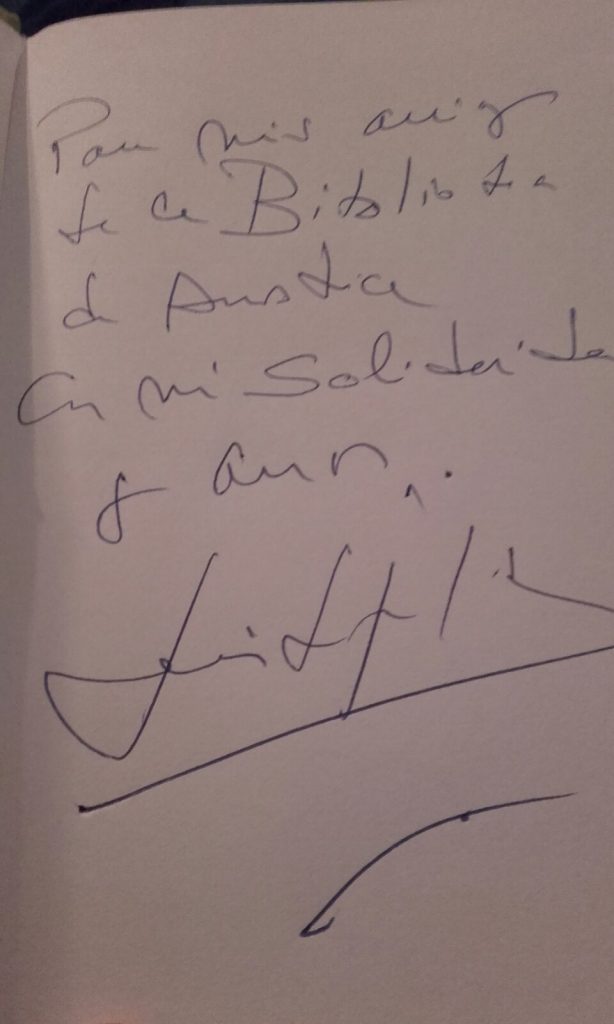 Para mis amig
de la Biblioteca
de Austria
Con mi Solidarida
y amor,